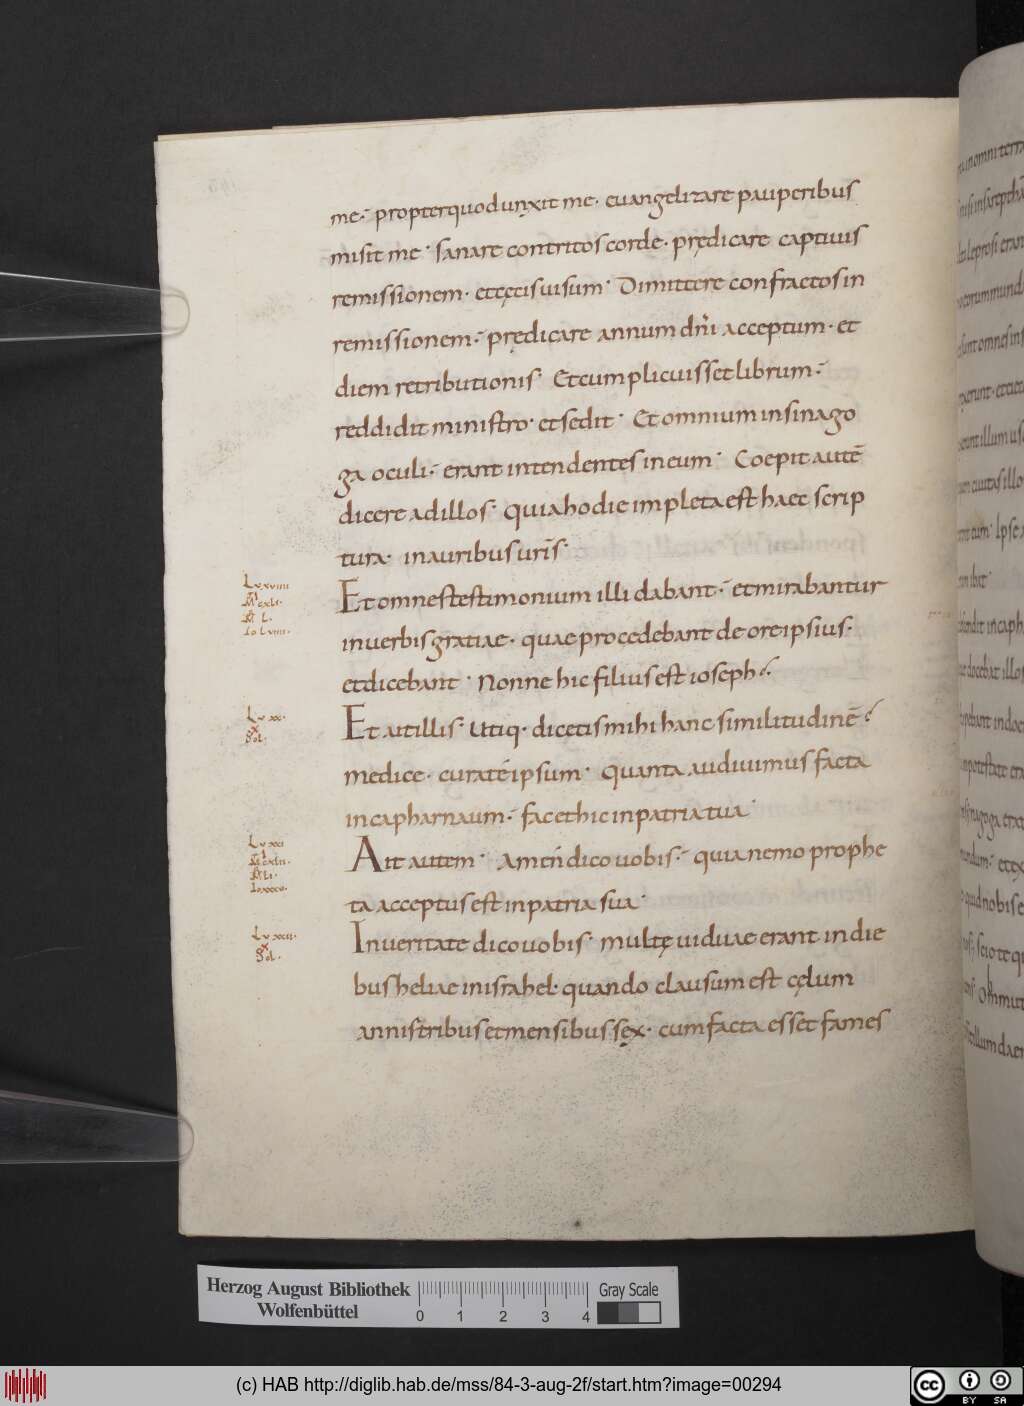 me· propterquod unxit me· euangelizare pauperibus
misit me· sanare contritos corde· prędicare captiuis
remissionem· etcęcis uisum· Dimittere confractos in
remissionem· prędicare annum dn̄i acceptum· et
diem retributionis· Etcum plicuisset librum·
reddidit ministro· et sedit· Et omnium insinago
ga oculi· erant intendentes ineum· Coepit autē
dicere adillos· quia hodie impleta est haec scrip
tura· inauribus ur̄is·
Lu xviiii
Et omnes testimonium illi dabant· etmirabantur
inuerbis gratiae· quae procedebant de ore ipsius·
etdicebant· Nonne hic filius est ioseph·
Lu xx·
Sol·
Et ait illis· Utiq· dicetis mihi hanc similitudinē·
medice· cura te ipsum· quanta audiuimus facta
incapharnaum· fac ethic inpatria tua·
Lu xxi
Ait autem· Amen dico uobis· quia nemo prophe
ta acceptus est inpatria sua·
Lu xxii·
Sol·
In ueritate dico uobis· multę uiduae erant in die
bus heliae inisrahel· quando clausum est cęlum
annis tribus et mensibus sex· cum facta esset fames
Herzog August Bibliothek
Wolfenbüttel
0 1 2 3 4
Gray Scale
(c) HAB http://diglib.hab.de/mss/84-3-aug-2f/start.htm?image=00294
cc BY SA